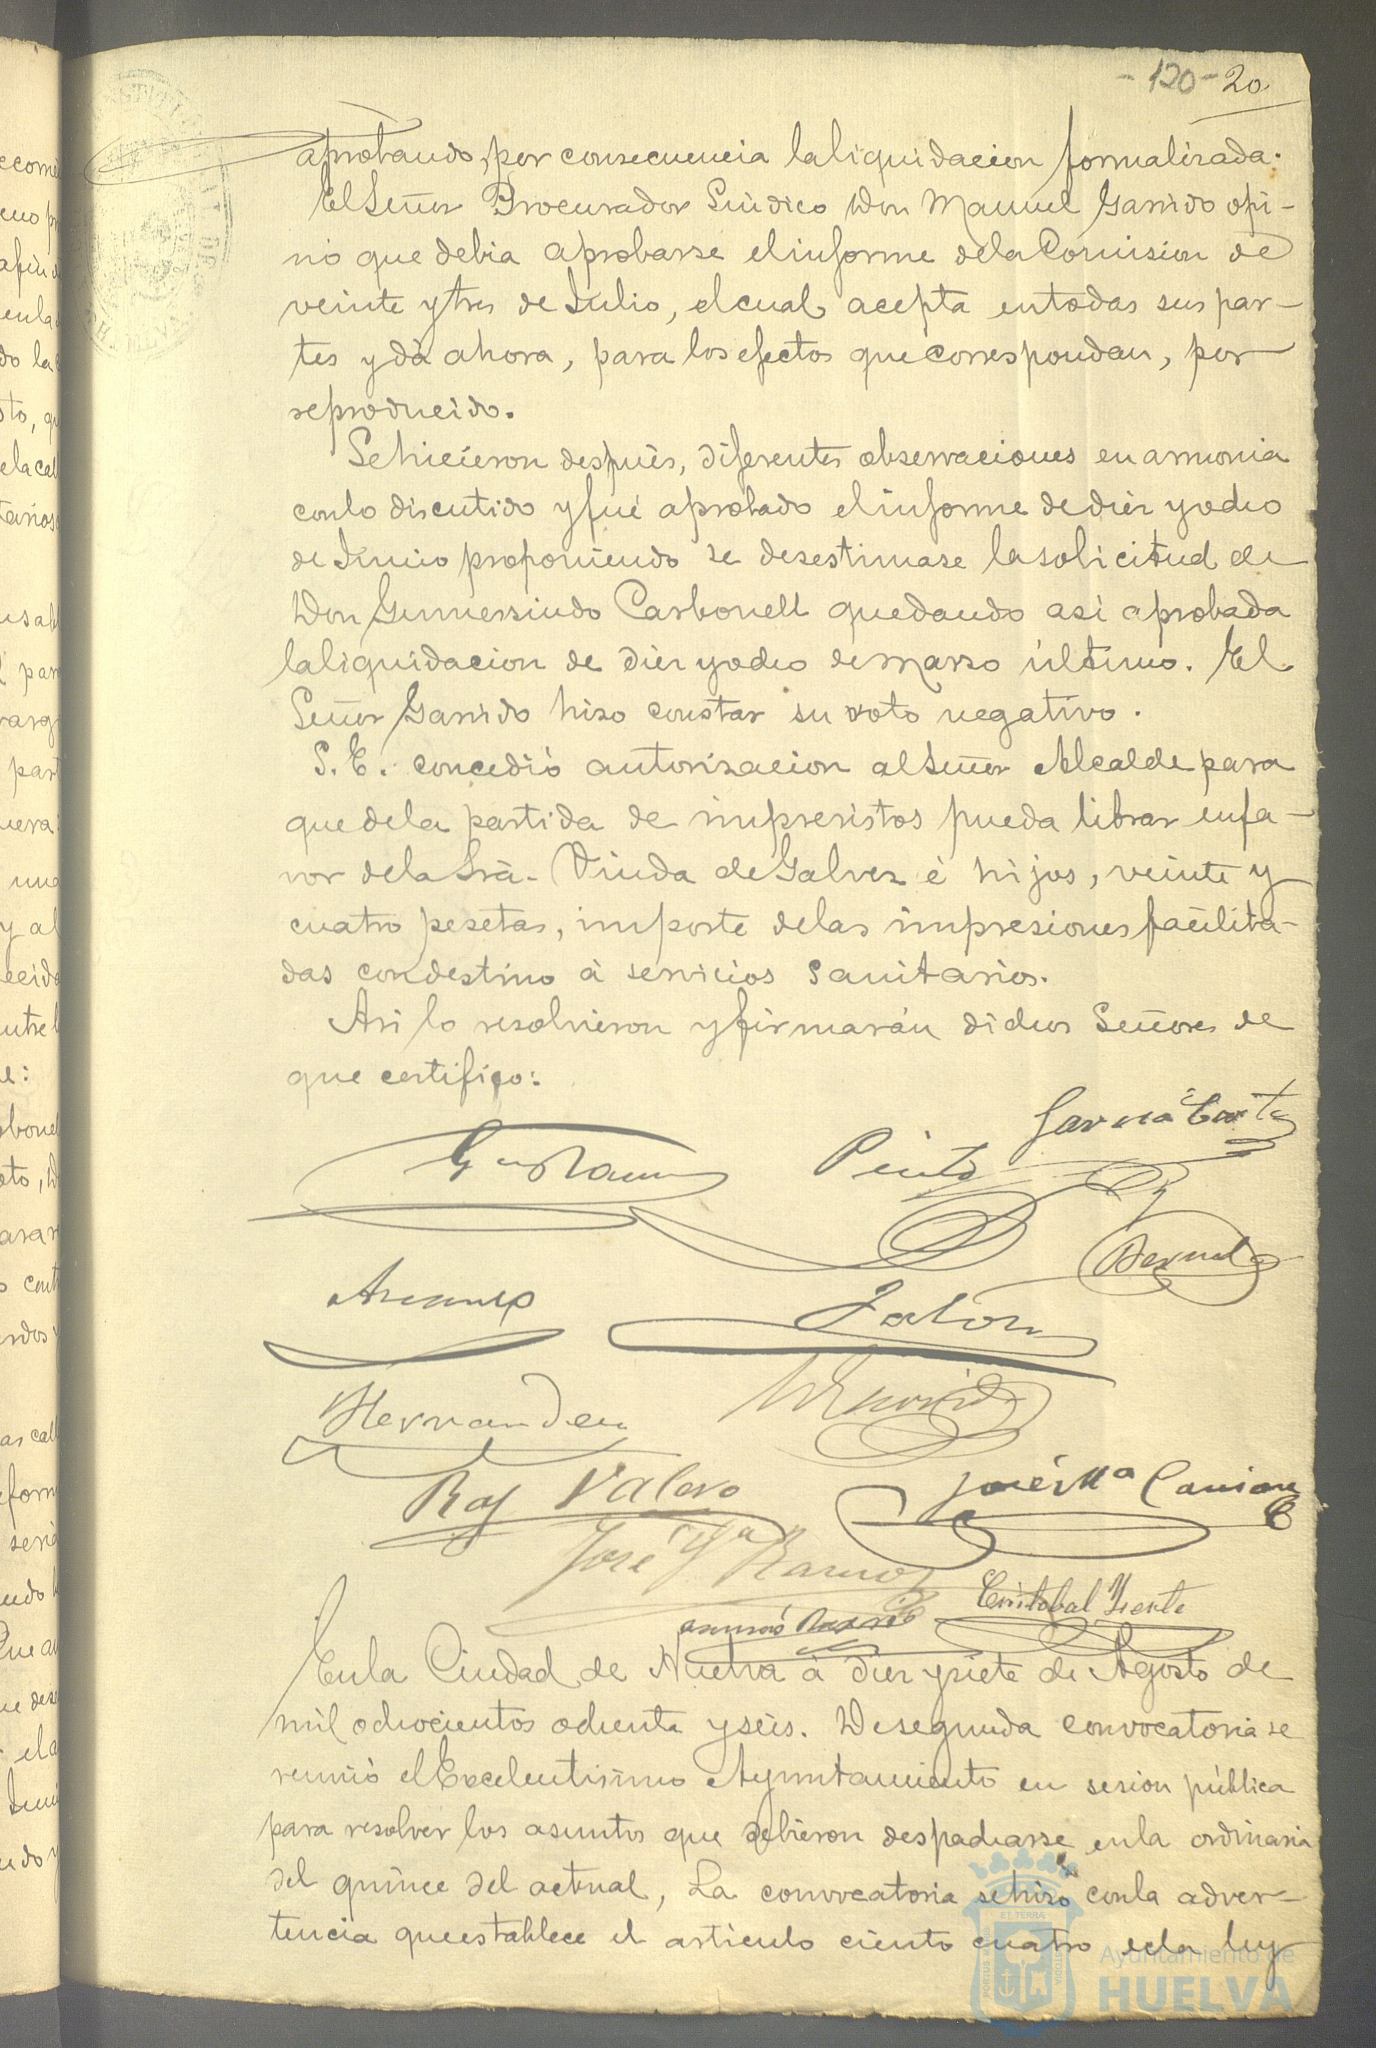 -120- 20
aprobando, por consecuencia la liquidacion formalizada.
El Señor Procurador Sindico Don Manuel Garrido opi-
nó que debia aprobarse el informe de la Comision de
veinte y tres de Julio, el cual acepta en todas sus par-
tes y dá ahora, para los efectos que correspondan, por
reproducido.
Se hicieron después, diferentes observaciones en armonia
con lo discutido y fué aprobado el informe de diez y ocho
de Junio proponiendo se desestimase la solicitud de
Don Gumersindo Carbonell quedando asi aprobada
la liquidacion de diez y ocho de marzo último. El
Señor Garrido hizo constar su voto negativo.
S. E. concedió autorizacion al Señor Alcalde para
que de la partida de imprevistos pueda librar en fa-
vor de la Srâ. Viuda de Galvez é hijos, veinte y
cuatro pesetas, importe de las impresiones facilita-
das con destino á servicios sanitarios.
Asi lo resolvieron y firmarán dichos Señores de
que certifico:
Garcia
Pinto
Bernal
Jalon
Hernandez
Raf Valero
José Mª
José Ramos
Cristobal
En la Ciudad de Huelva á diez y siete de Agosto de
mil ochocientos ochenta y seis. De segunda convocatoria se
reunió el Excelentisimo Ayuntamiento en sesion pública
para resolver los asuntos que debieron despacharse en la ordinaria
del quince del actual, La convocatoria se hizo con la adver-
tencia que establece el articulo ciento cuatro de la ley
Ayuntamiento de
HUELVA